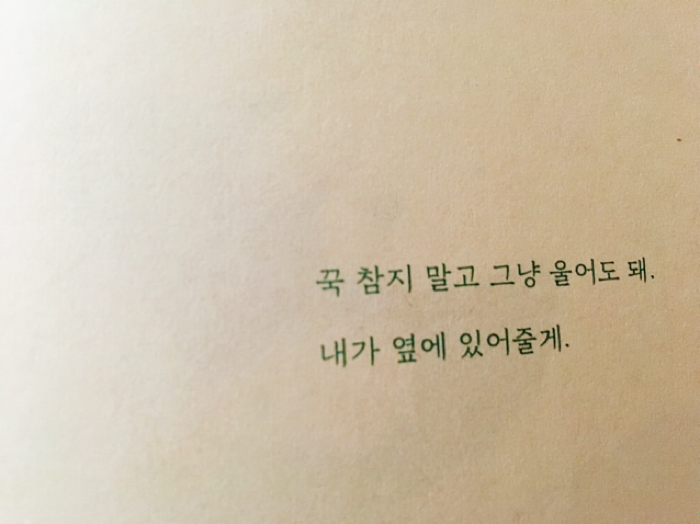 꾹 참지 말고 그냥 울어도 돼.
내가 옆에 있어줄게.